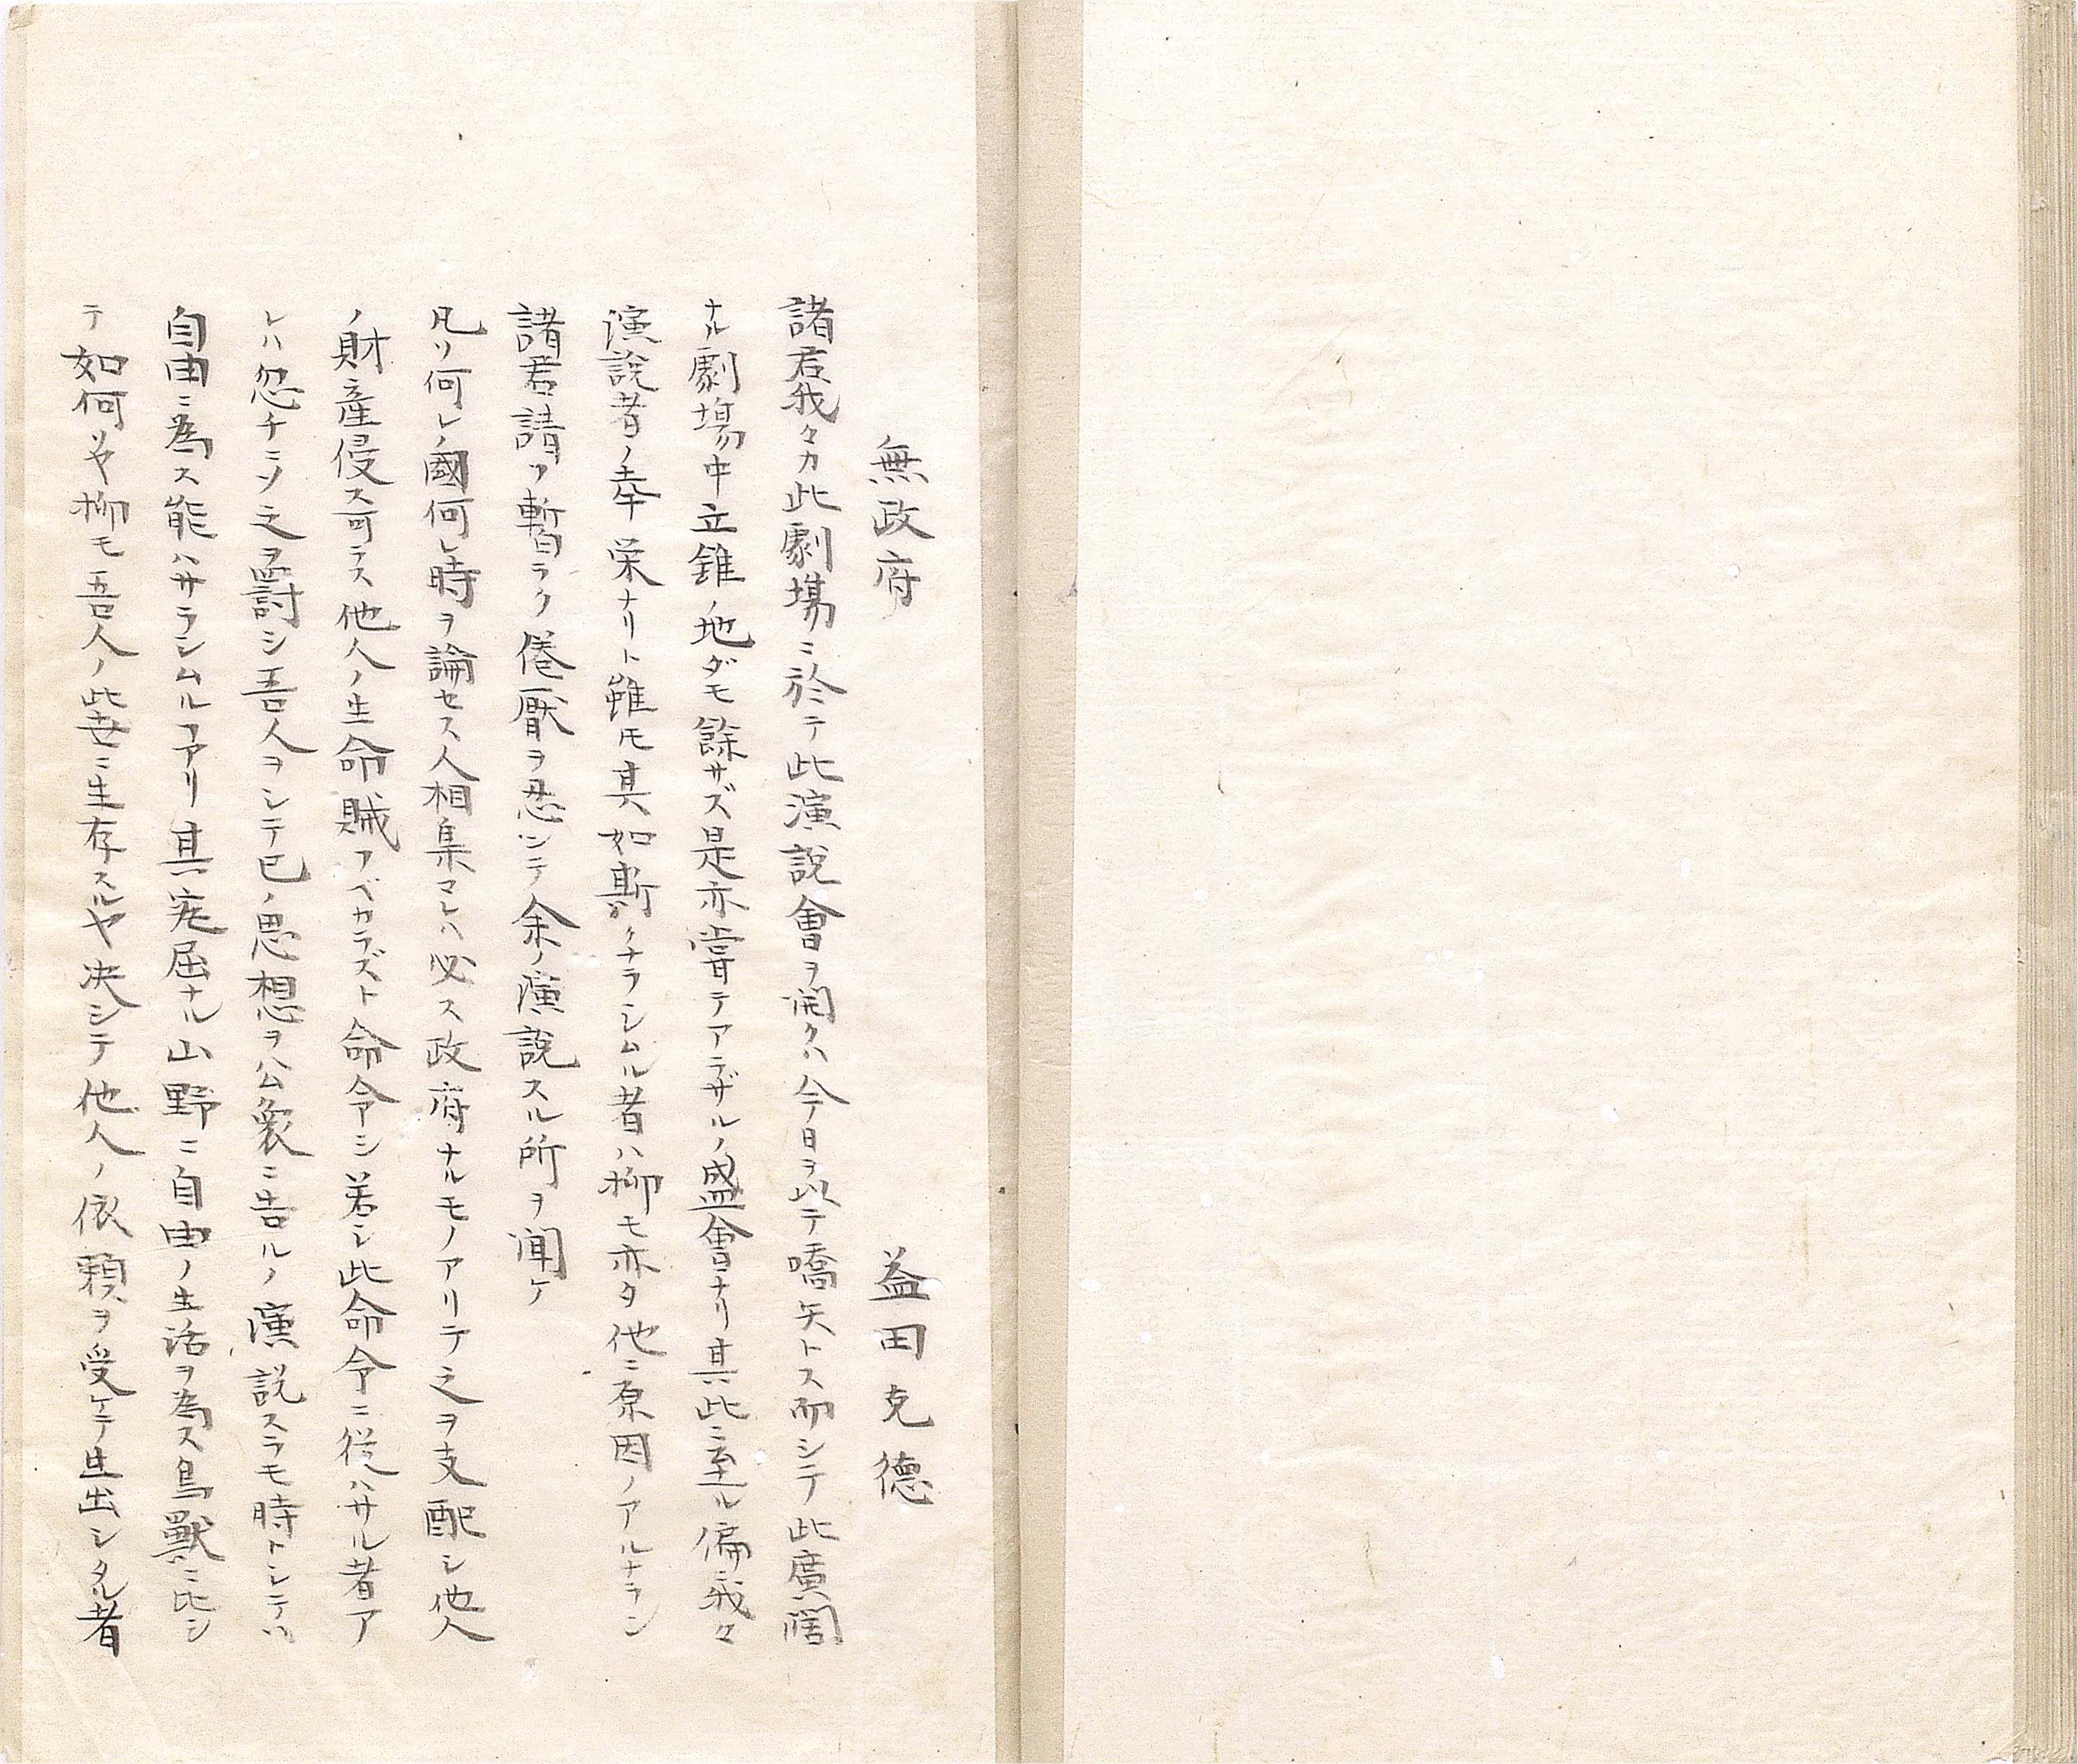 無政府　益田克徳
諸君我々カ此劇場ニ於テ此演説會ヲ開クハ今日ヲ以テ嚆矢トス而シテ此廣闊
ナル劇場中立錐ノ地ダモ餘サズ是亦嘗テアラザルノ盛會ナリ其此ニ至ル偏ニ我々
演説者ノ幸栄ナリト雖モ其如斯クナラシムル者ハ抑モ亦タ他ニ原因ノアルナラン
諸君請フ暫ラク倦厭ヲ忍ンテ余ノ演説スル所ヲ聞ケ
凡ソ何レノ國何レノ時ヲ論セス人相集マレハ必ス政府ナルモノアリテ之ヲ支配シ他人
ノ財産侵ス可ラス他人ノ生命賊フベカラズト命令シ若シ此命令ニ従ハサル者ア
レハ忽チニシテ之ヲ罸シ吾人ヲシテ己ノ思想ヲ公衆ニ告ルノ演説スラモ時トシテハ
自由ニ為ス能ハサラシムルヿアリ其寃屈ナル山野ニ自由ノ生活ヲ為ス鳥獣ニ比シ
テ如何ソヤ抑モ吾人ノ此世ニ生存スルヤ决シテ他人ノ依頼ヲ受ケテ生出シタル者